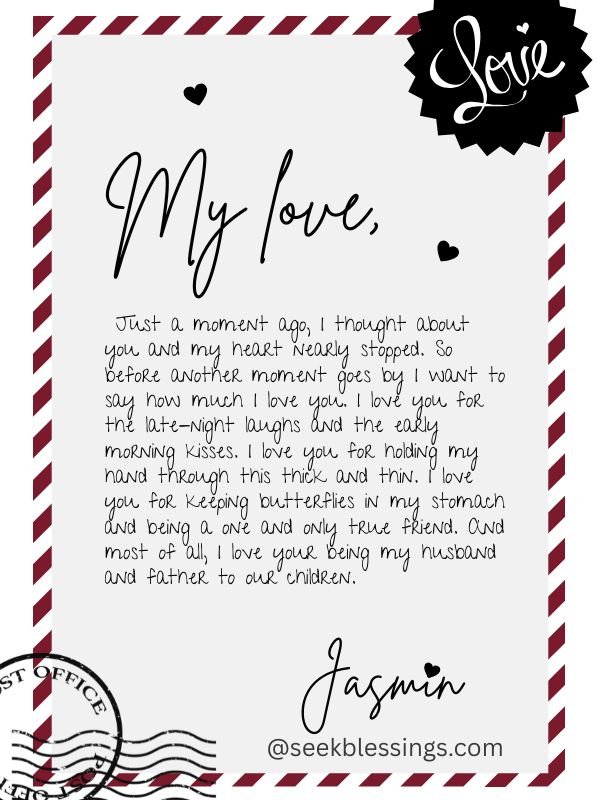 Love
My love,
Just a moment ago, I thought about
you and my heart nearly stopped. So
before another moment goes by I want to
say how much I love you. I love you for
the late-night laughs and the early
morning kisses. I love you for holding my
hand through this thick and thin. I love
you for keeping butterflies in my stomach
and being a one and only true friend. And
most of all, I love your being my husband
and father to our children.
Jasmin
@seekblessings.com
POST OFFICE